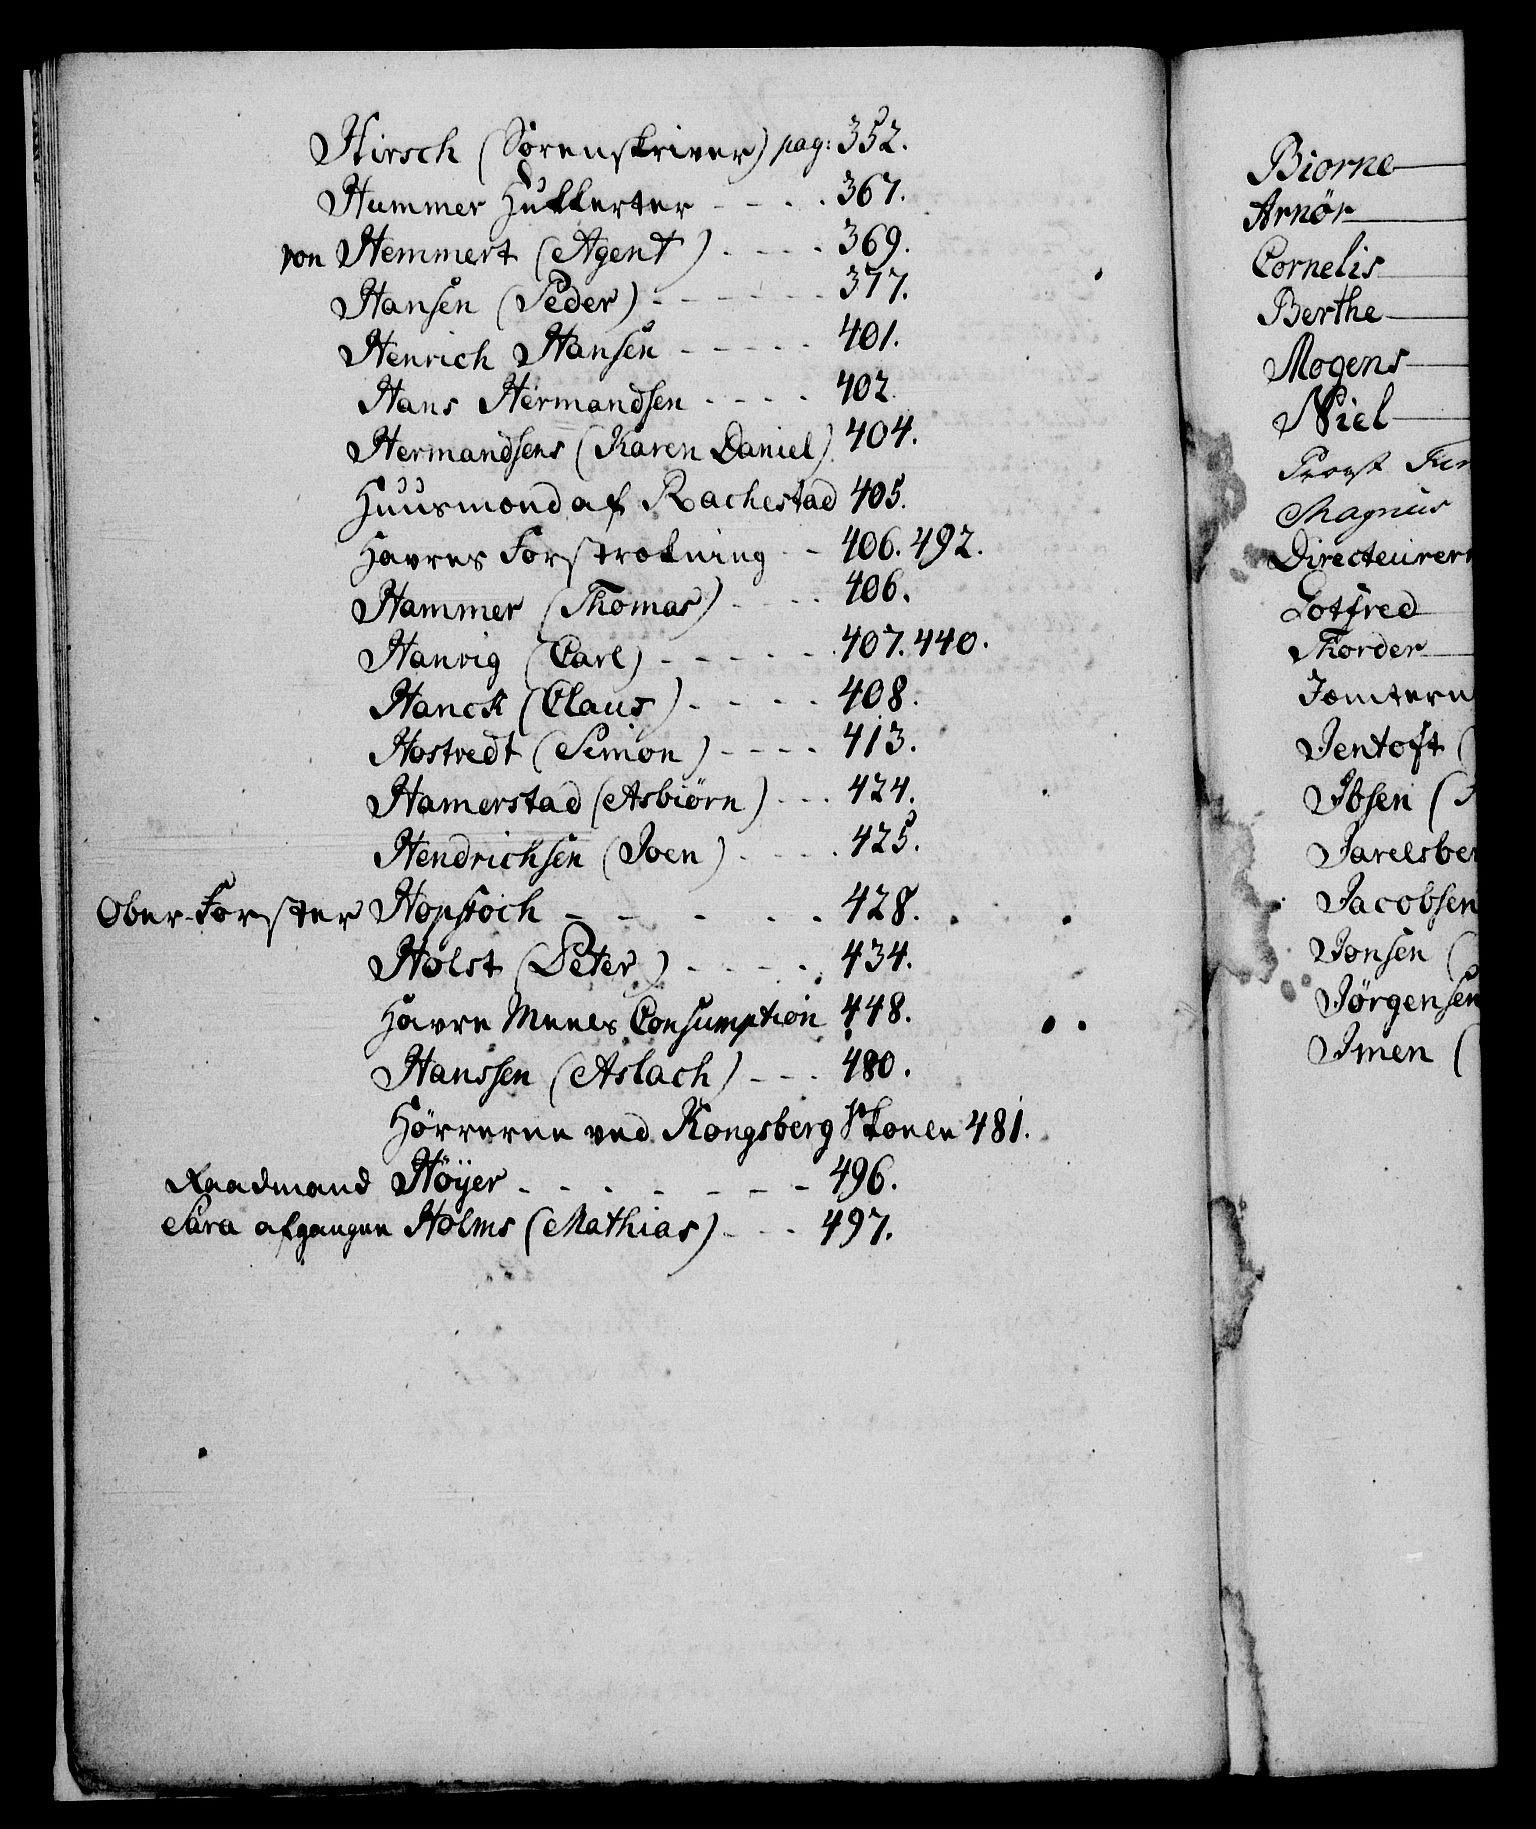 Hirsch (Sorenskriver) pag: 352.
Hummer Hukkerter - - - . 367.
von Hemmert (Agent) . - - . 369.
Hansen (Peder) - - - - - . 377.
Henrich Hansen - - - - . 401.
Hans Hermandsen . - - . 402
Hermandsens (Karen Daniel) 404.
Huusmænd af Rachestad 405.
Havres Forstrækning - - 406. 492.
Hammer (Thomas) . - - . 406.
Hanvig (Carl) - - - - - . 407. 440.
Hanck (Claus) . - - - . 408.
Hostvedt (Simon) - - - . 413.
Hamerstad (Asbiörn) - - . 424.
Hendrichsen (Joen) . - - . 425.
Ober-Forster Hopstoch - - - - - . 428.
Holst (Peter) - - - - . 434.
Havre Meels Consumption 448.
Hanssen (Aslach) - - - . 480.
Hörrerne ved Kongsberg Skole 481.
Raadmand Höyer - - - - - - - 496.
Sära afgangne Holms (Mathias) - - . 497.
Biorne
Arnör
Cornelis
Berthe
Mogens
Niel
Provst
Magnus
Directeurer
Gotfred
Thorder
Jemtern
Jentoft (
Ibsen (
Jarelsber
Jacobsen
Jonsen (
Jörgensen
Imen (